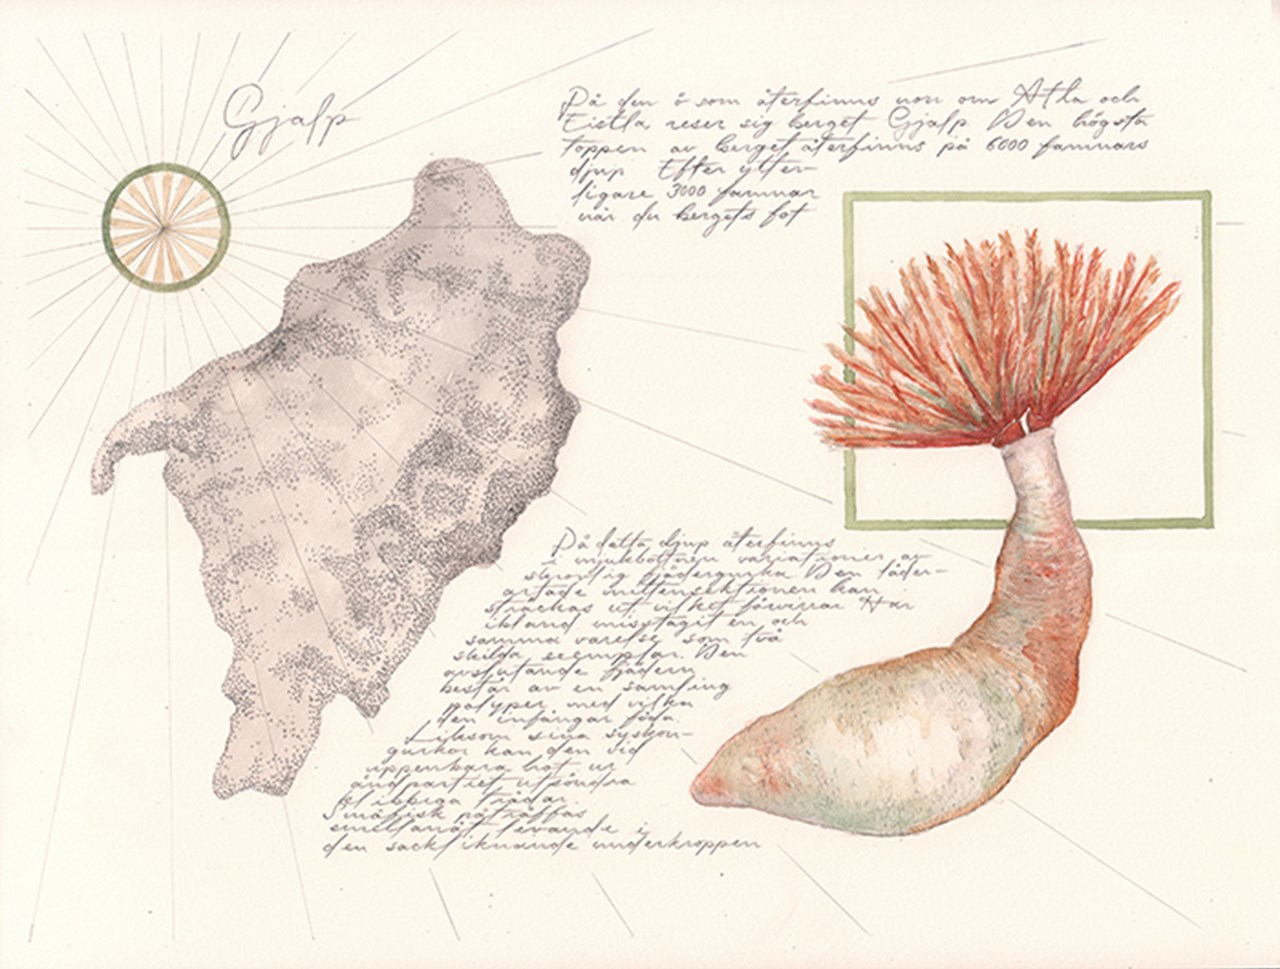 Gjalp
På den ö som återfinns norr om Atla och
Eistla, reser sig berget Gjalp. Den högsta
toppen av berget återfinns på 6000 famnars
djup. Efter ytter-
ligare 3000 famnar
når du bergets fot
På detta djup återfinns
i mjukbottnen variationer av
fjädergurka. Den läder-
artade mittensektionen kan
sträckas ut vilket förvirrar. Har
ibland misstagit en och
samma varelse som två
skilda exemplar. Den
avslutande fjädern
består av en samling
polyper med vilka
den infångar föda.
Liksom sina syskon-
gurkor kan den vid
uppenbara hot ur
ändpartiet utsöndra
klibbiga trådar.
Småfisk påträffas
emellanåt levande i
den säckliknande underkroppen